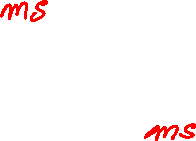 ms
ms